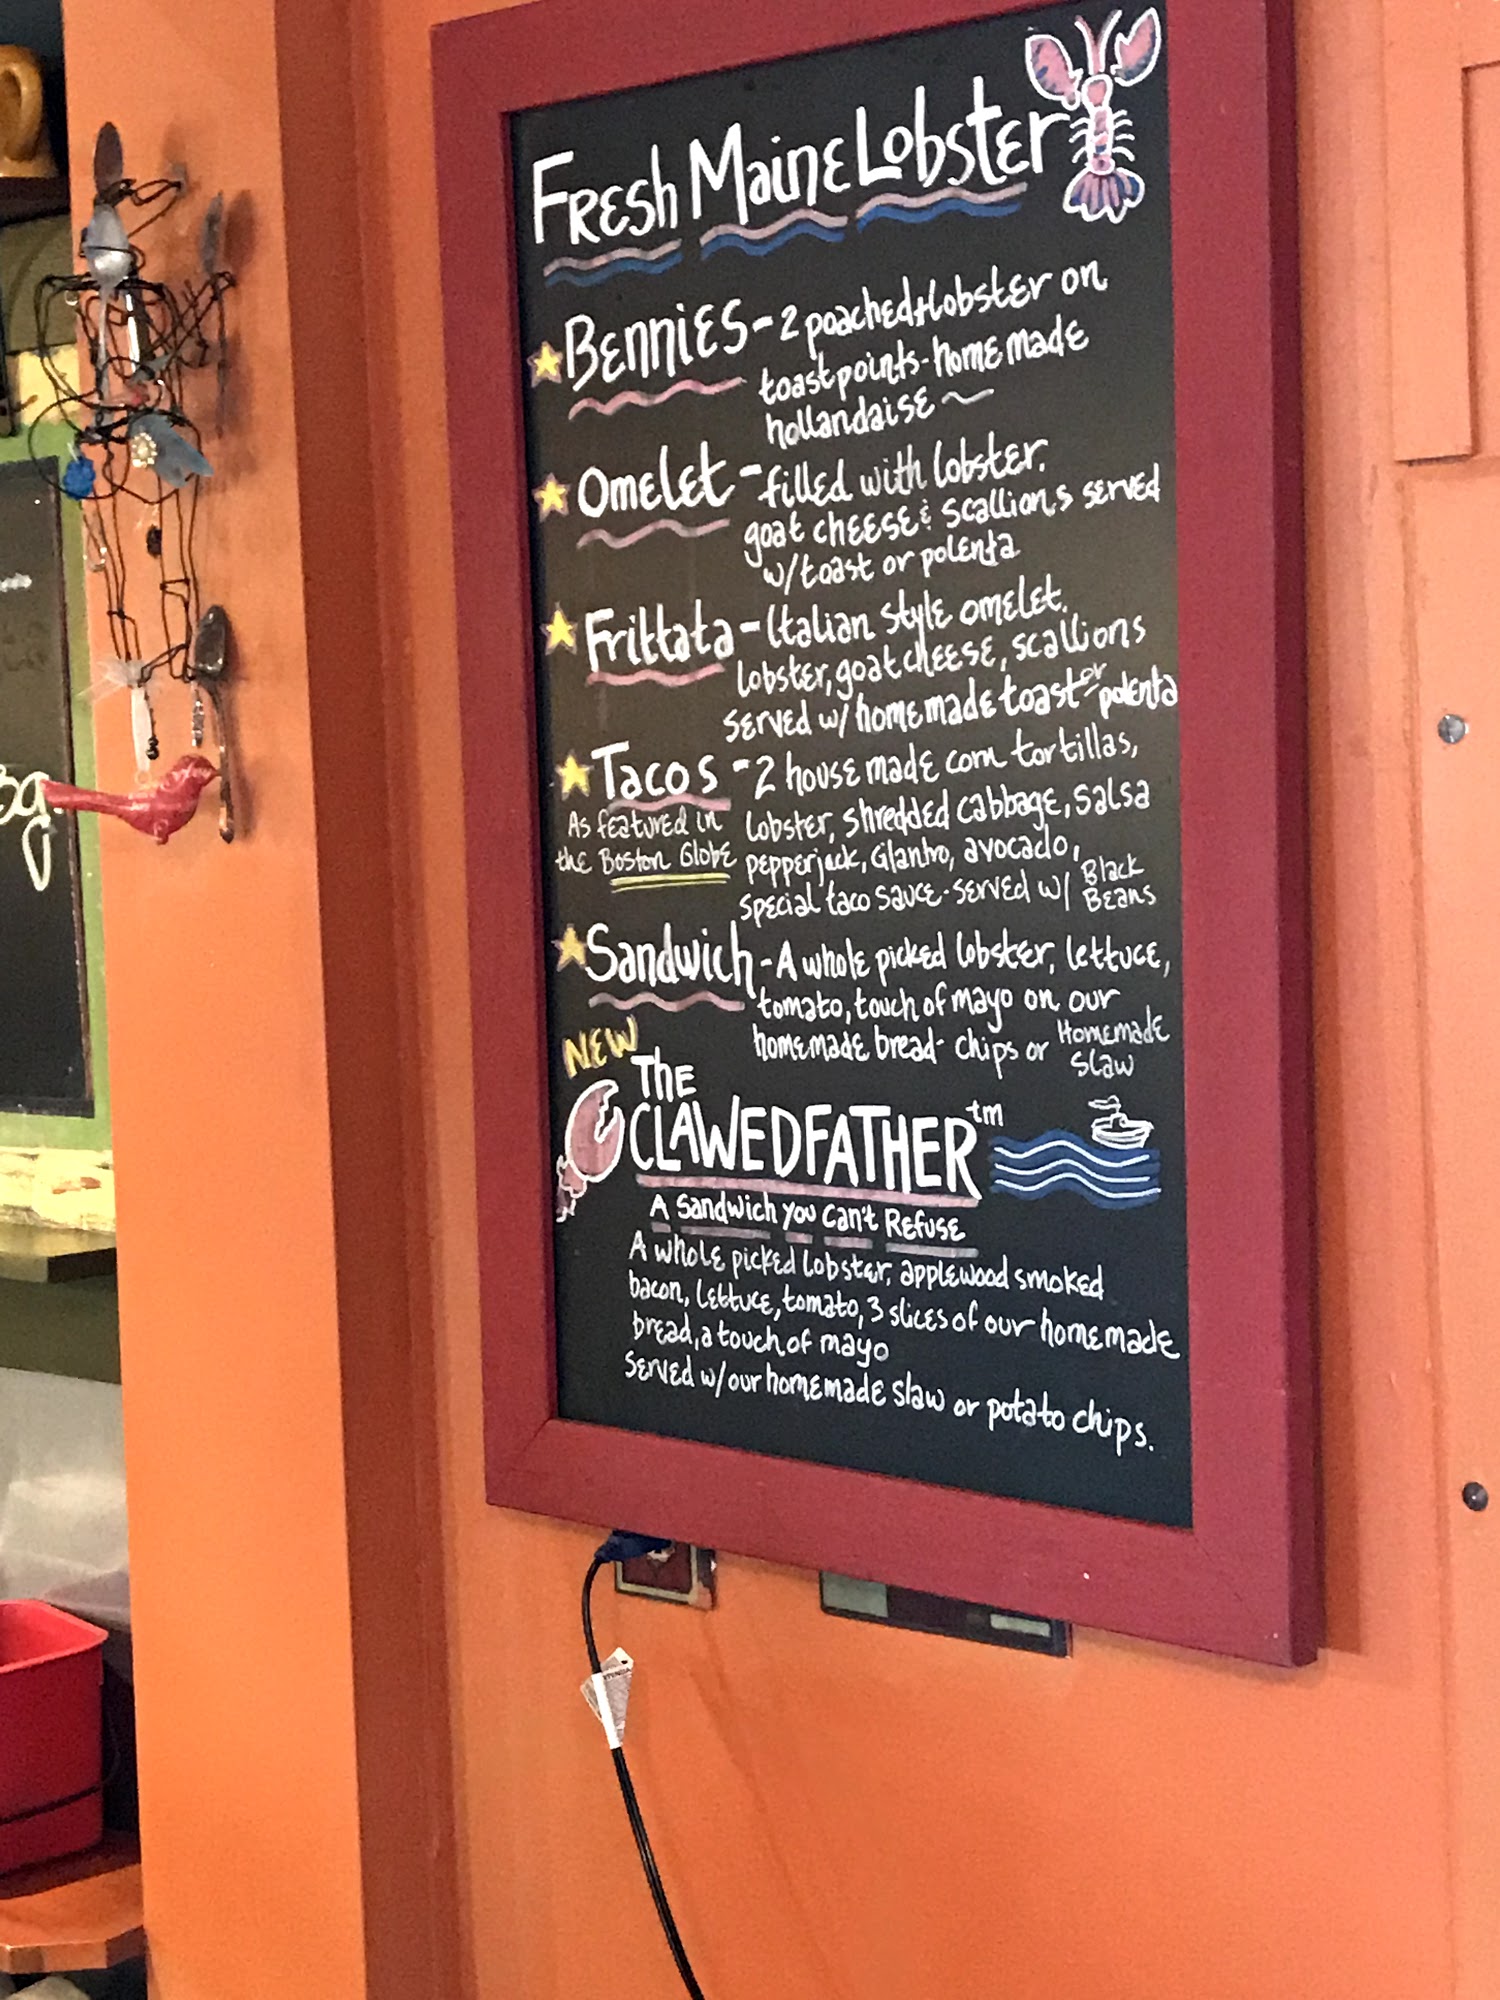 Fresh Maine Lobster
Bennies - 2 poached + lobster on
toast points - homemade
hollandaise ~
Omelet - filled with lobster,
goat cheese & scallions served
w/ toast or polenta
Frittata - Italian style omelet.
lobster, goat cheese, scallions
served w/ homemade toast or polenta
Tacos - 2 house made corn tortillas,
As featured in
the Boston Globe
lobster, shredded cabbage, salsa
pepperjack, cilantro, avocado,
special taco sauce - served w/ Black
Beans
Sandwich - A whole picked lobster, lettuce,
tomato, touch of mayo on our
homemade bread - chips or Homemade
Slaw
NEW
The
CLAWEDFATHER tm
A Sandwich you Can't Refuse
A whole picked lobster, applewood smoked
bacon, lettuce, tomato, 3 slices of our homemade
bread, a touch of mayo
Served w/ our homemade slaw or potato chips.